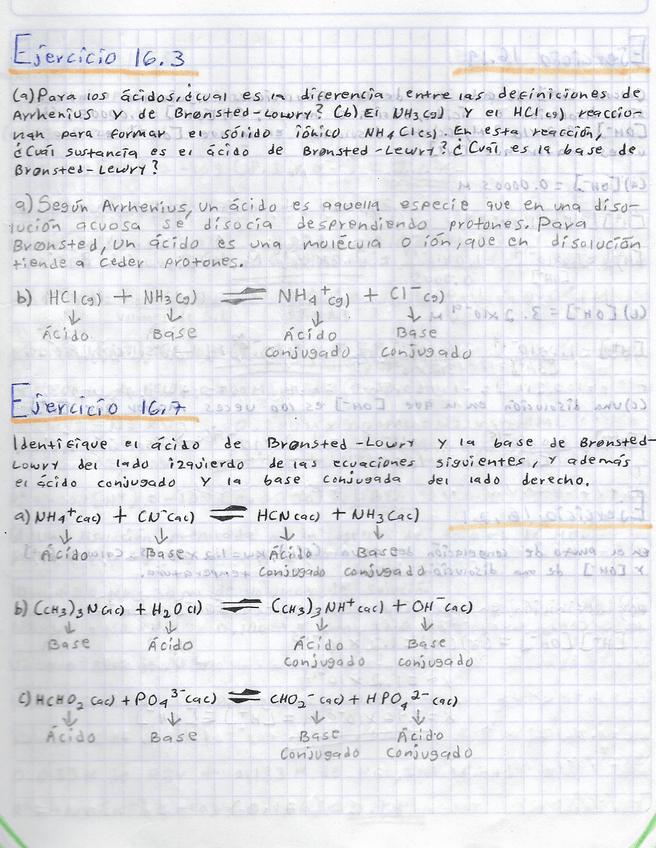 Ejercicio 16.3
(a) Para los ácidos, ¿cual es la diferencia entre las definiciones de
Arrhenius y de Brønsted-Lowry? (b) El NH3(g) y el HCl(g) reaccio-
nan para formar el sólido iónico NH4Cl(s). En esta reacción,
¿Cuál sustancia es el ácido de Brønsted-Lewry? ¿Cuál es la base de
Brønsted-Lewry?
a) Según Arrhenius, un ácido es aquella especie que en una diso-
lución acuosa se disocia desprendiendo protones. Para
Brønsted, un ácido es una molécula o ión, que en disolución
tiende a ceder protones.
b) HCl(g) + NH3(g) ⇌ NH4+(g) + Cl-(g)
↓ ↓ ↓ ↓
Ácido Base Ácido Base
conjugado conjugado
Ejercicio 16.7
Identifique el ácido de Brønsted-Lowry y la base de Brønsted-
Lowry del lado izquierdo de las ecuaciones siguientes, y además
el ácido conjugado y la base conjugada del lado derecho.
a) NH4+(ac) + CN-(ac) ⇌ HCN(ac) + NH3(ac)
↓ ↓ ↓ ↓
Ácido Base Ácido Base
conjugado conjugado
b) (CH3)3N(ac) + H2O(l) ⇌ (CH3)3NH+(ac) + OH-(ac)
↓ ↓ ↓ ↓
Base Ácido Ácido Base
conjugado conjugado
c) HCHO2(ac) + PO4 3-(ac) ⇌ CHO2-(ac) + HPO4 2-(ac)
↓ ↓ ↓ ↓
Ácido Base Base Ácido
Conjugado Conjugado